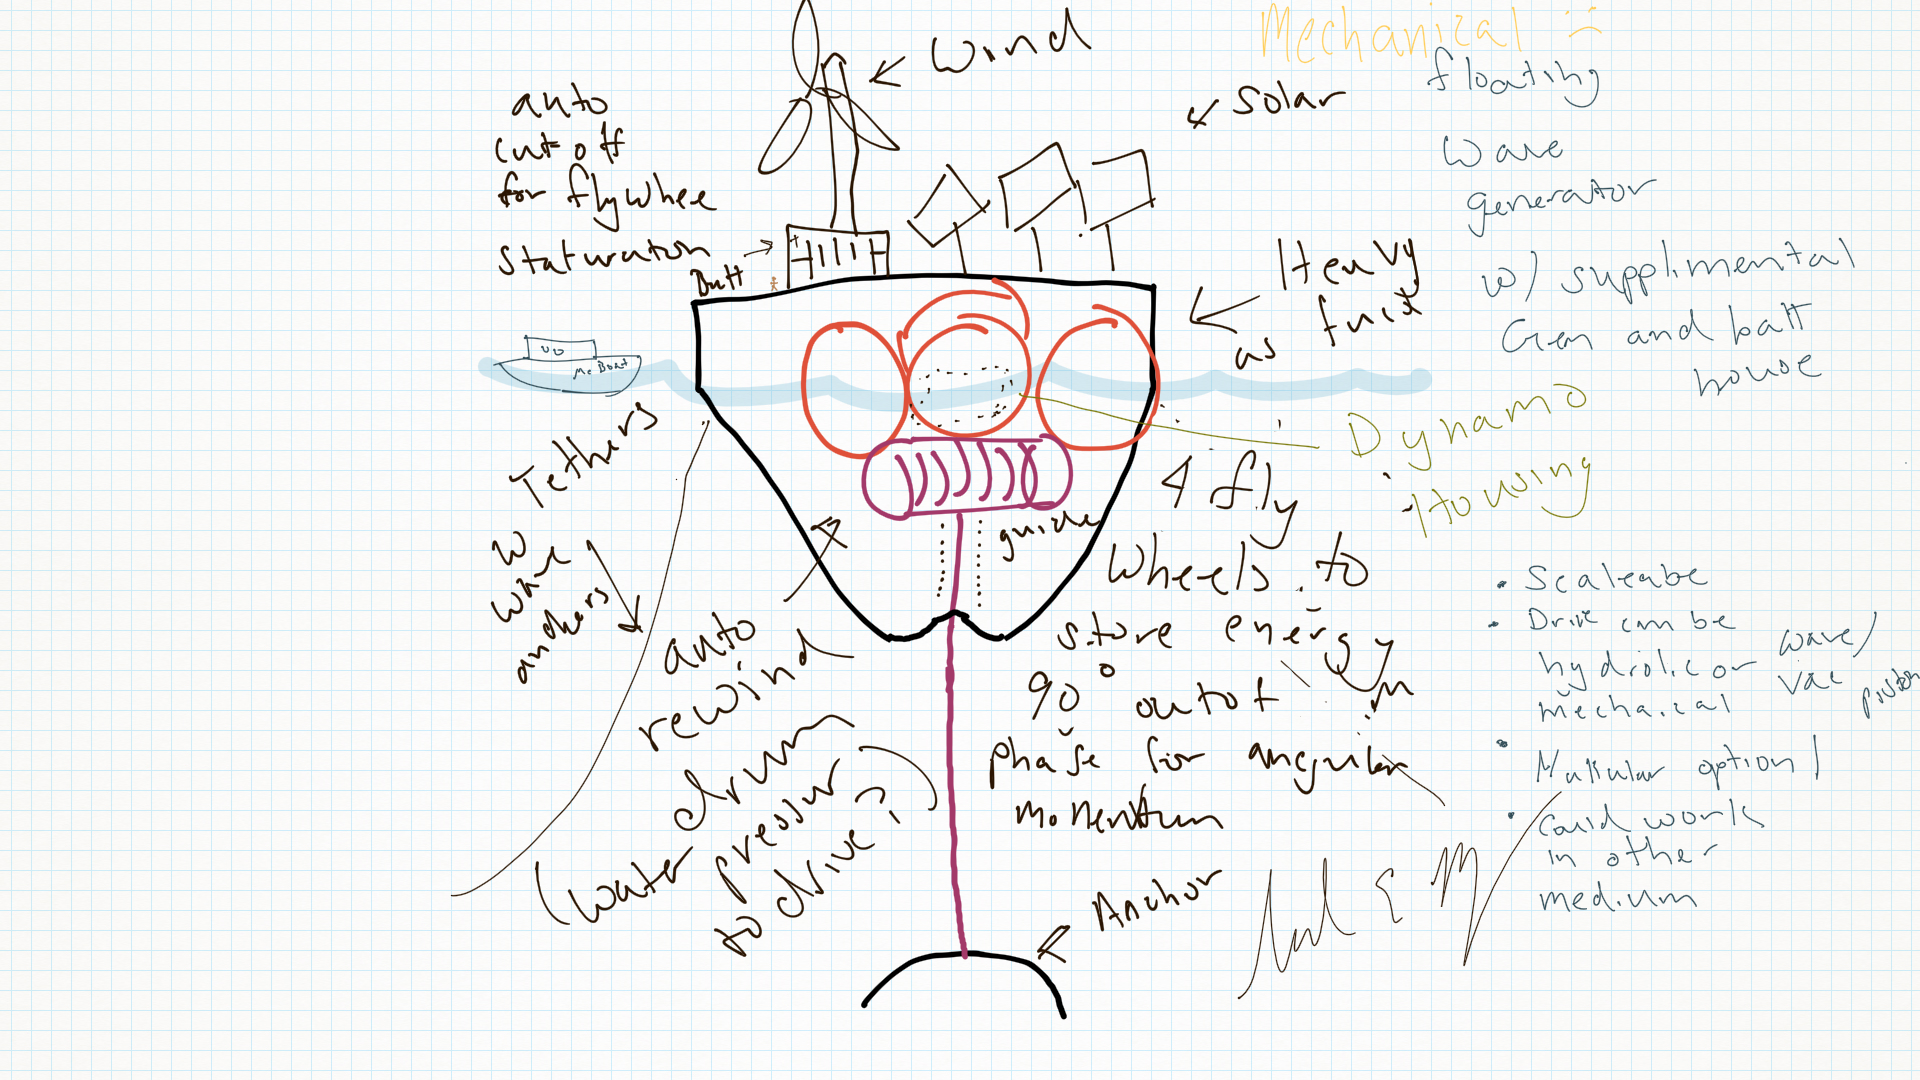 Mechanical :)
floating
wave
generator
w/ supplimental
Gen and batt
house
Wind
Solar
auto
cut off
for flywhee
Staturation
Batt
Heavy
as
Mc Boat
Dynamo
Housing
Tethers
w
wave
anchors
guide
4 fly
Wheels to
store energy
in
90° out of
phase for angular
momentum
auto
rewind
drum
(water
pressur
to drive?)
Anchor
• Scaleabe
• Drive can be
hydrolic or wave/
mechaical vac
piston
• option/
• Could work
in other
medium